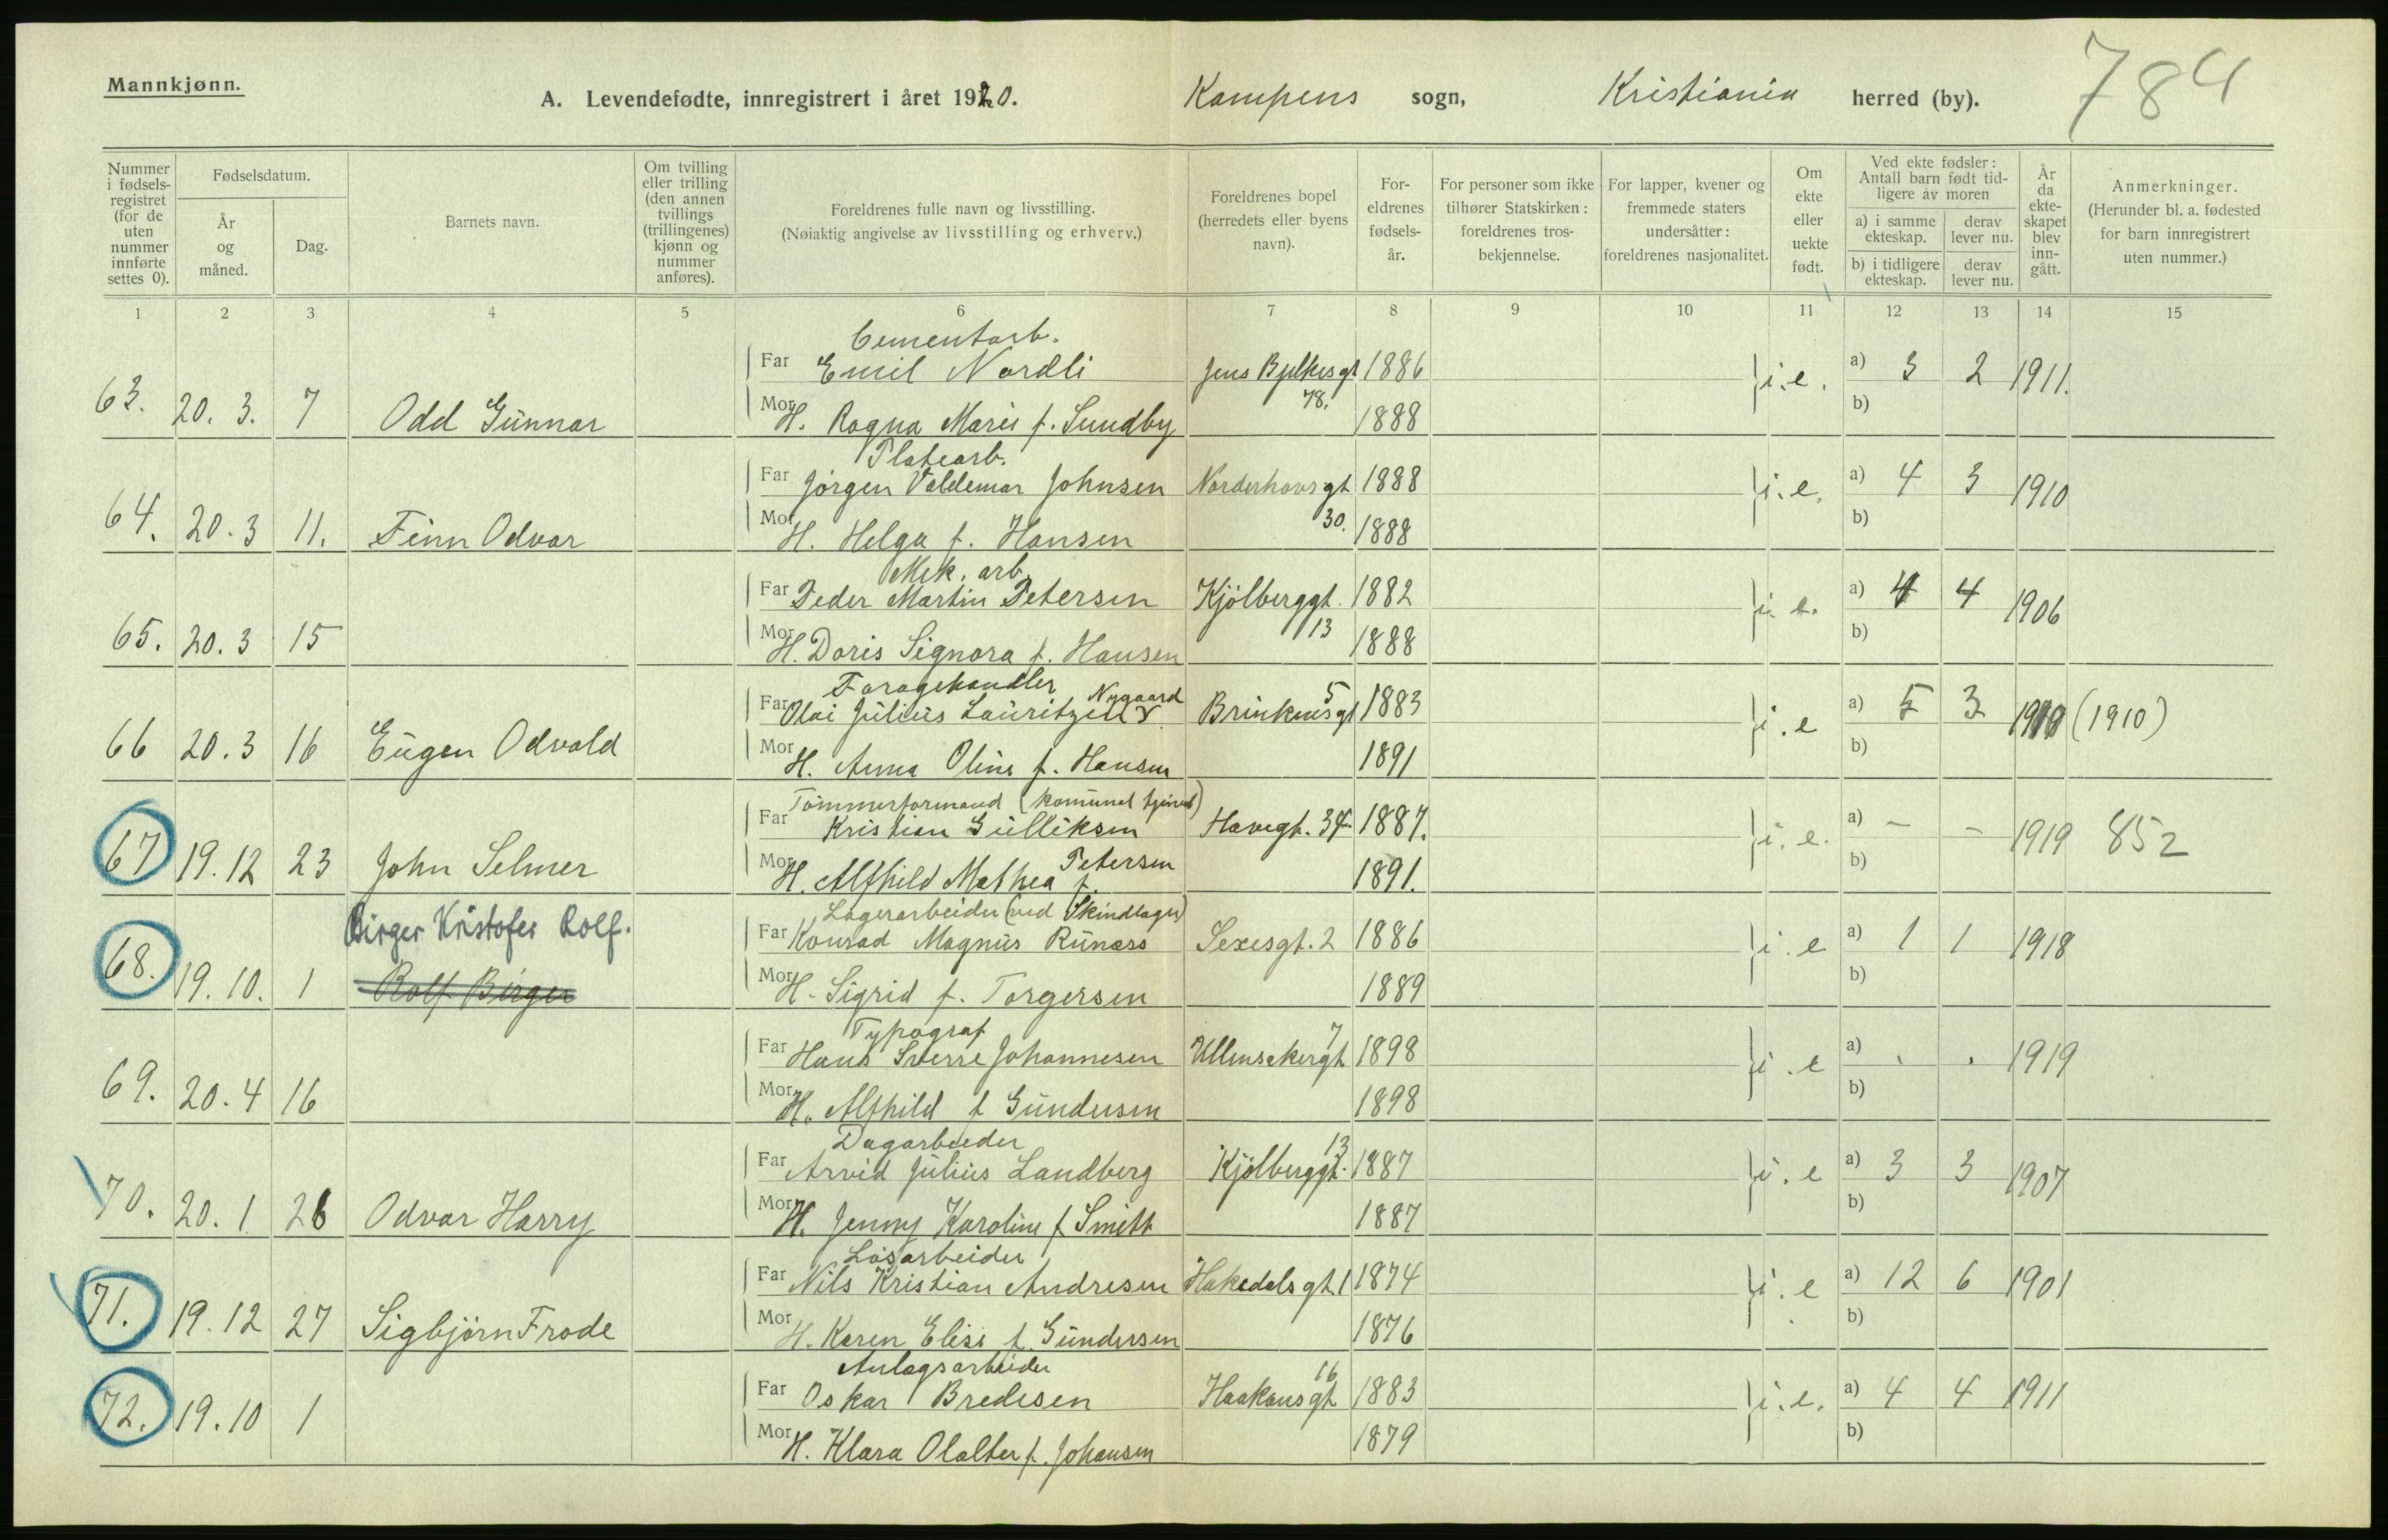 Mannkjønn.
A. Levendefødte, innregistrert i året 1920. Kampens sogn, Kristiania herred (by). 784
Nummer i fødselsregistret (for de uten nummer innførte settes 0).
Fødselsdatum.
År og måned.
Dag.
Barnets navn.
Om tvilling eller trilling (den annen tvillings (trillingenes) kjønn og nummer anføres).
Foreldrenes fulle navn og livsstilling.
(Nøiaktig angivelse av livsstilling og erhverv.)
Foreldrenes bopel (herredets eller byens navn).
Foreldrenes fødselsår.
For personer som ikke tilhører Statskirken: foreldrenes trosbekjennelse.
For lapper, kvener og fremmede staters undersåtter: foreldrenes nasjonalitet.
Om ekte eller uekte født.
Ved ekte fødsler: Antall barn født tidligere av moren
a) i samme ekteskap. derav lever nu.
b) i tidligere ekteskap. derav lever nu.
År da ekteskapet blev inngått.
Anmerkninger.
(Herunder bl. a. fødested for barn innregistrert uten nummer.)
1 2 3 4 5 6 7 8 9 10 11 12 13 14 15
Cementarb.
Far Emil Nordli Jens Bjelkesgt 1886 i.e. a) 3 2 1911.
63. 20. 3. 7 Odd Gunnar Mor H. Ragna Marie f. Sundby 78. 1888 b)
Platearb.
Far Jørgen Valdemar Johnsen Norderhovsgt 1888 i.e. a) 4 3 1910
64. 20. 3 11. Finn Odvar Mor H. Helga f. Hansen 30. 1888 b)
Mek. arb.
Far Peder Martin Petersen Kjölberggt. 1882 i.e. a) 4 4 1906
65. 20. 3 15 Mor H. Doris Signora f. Hansen 13 1888 b)
Foragehandler Nygaard
Far Olai Julius Lauritzen Brinkensgt 5 1883 i.e a) 5 3 1910 (1910)
66 20. 3 16 Eugen Odvald Mor H. Anna Oline f. Hansen 1891 b)
Tømmerformand (komunal
Far Kristian Gulliksen Havegt. 34 1887. i.e. a) - - 1919 852
67 19. 12 23 John Selmer Mor H. Alfhild Mathea f. Petersen 1891. b)
Birger Kristofer Rolf. Lagerarbeider (ved Skindlager)
Far Konrad Magnus Runass Sexesgt. 2 1886 i.e a) 1 1 1918
68. 19. 10. 1 Rolf Birger Mor H. Sigrid f. Torgersen 1889 b)
Typograf
Far Hans Sverre Johannesen Ullensakergt 7 1898 i.e a) . . 1919
69. 20. 4 16 Mor H. Alfhild f Gundersen 1898 b)
Dagarbeider
Far Arvid Julius Landberg Kjölberggt. 13 1887 i.e a) 3 3 1907
70. 20. 1 26 Odvar Harry Mor H. Jenny Karoline f Smith 1887 b)
Løsarbeider
Far Nils Kristian Andresen Hakedalsgt. 1 1874 i.e a) 12 6 1901
71. 19. 12 27 Sigbjörn Frode Mor H. Karen Elise f. Gundersen 1876 b)
Anlagsarbeider
Far Oskar Bredesen Haakonsgt 16 1883 i.e. a) 4 4 1911
72. 19. 10 1 Mor H. Klara f. Johansen 1879 b)